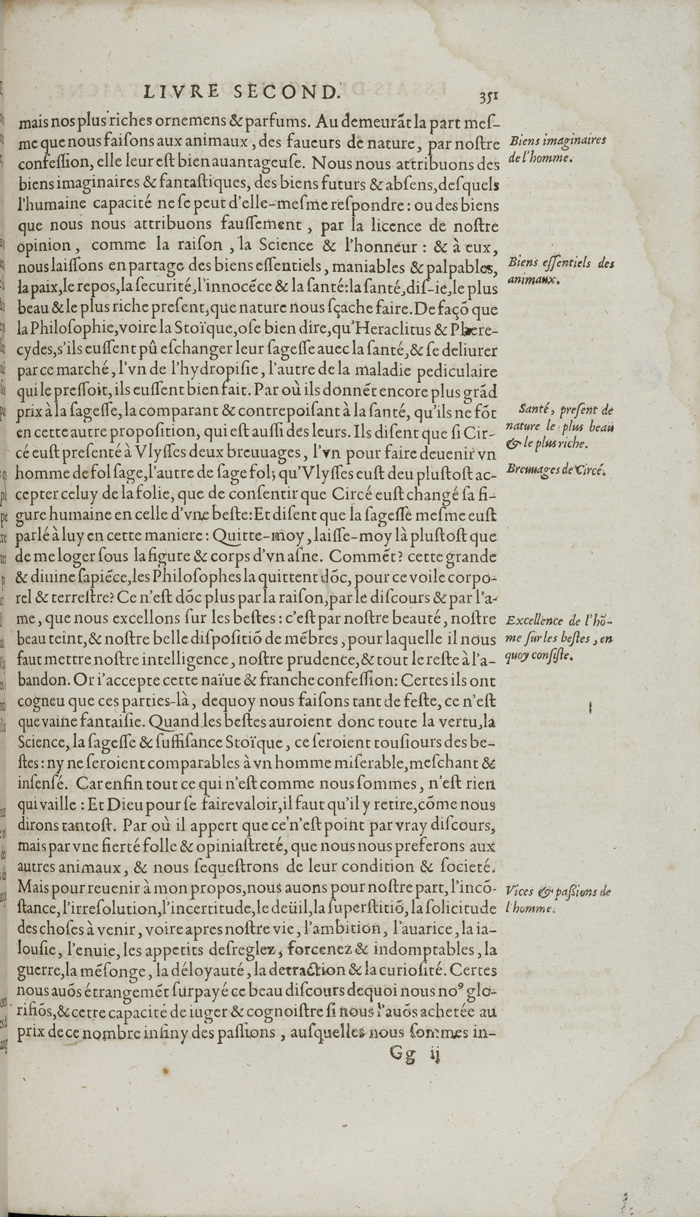 LIVRE SECOND.
351
mais nos plus riches ornemens & parfums. Au demeurãt la part meſ-
me que nous faiſons aux animaux, des faueurs de nature, par noſtre
confeſſion, elle leur eſt bien auantageuſe. Nous nous attribuons des
biens imaginaires & fantaſtiques, des biens futurs & abſens, deſquels
l'humaine capacité ne ſe peut d'elle-meſme reſpondre: ou des biens
que nous nous attribuons fauſſement, par la licence de noſtre
opinion, comme la raiſon, la Science & l'honneur: & à eux,
nous laiſſons en partage des biens eſſentiels, maniables & palpables,
la paix, le repos, la ſecurité, l'innocẽce & la ſanté: la ſanté, diſ-ie, le plus
beau & le plus riche preſent, que nature nous ſçache faire. De façõ que
la Philoſophie, voire la Stoïque, oſe bien dire, qu'Heraclitus & Phere-
cydes, s'ils euſſent pû eſchanger leur ſageſſe auec la ſanté, & ſe deliurer
par ce marché, l'vn de l'hydropiſie, l'autre de la maladie pediculaire
qui le preſſoit, ils euſſent bien fait. Par où ils donnẽt encore plus grãd
prix à la ſageſſe, la comparant & contrepoiſant à la ſanté, qu'ils ne fõt
en cette autre propoſition, qui eſt auſſi des leurs. Ils diſent que ſi Cir-
cé euſt preſenté à Vlyſſes deux breuuages, l'vn pour faire deuenir vn
homme de fol ſage, l'autre de ſage fol; qu'Vlyſſes euſt deu pluſtoſt ac-
cepter celuy de la folie, que de conſentir que Circé euſt changé ſa fi-
gure humaine en celle d'vne beſte: Et diſent que la ſageſſe meſme euſt
parlé à luy en cette maniere: Quitte-moy, laiſſe-moy là pluſtoſt que
de me loger ſous la figure & corps d'vn aſne. Commẽt? cette grande
& diuine ſapiẽce, les Philoſophes la quittent dõc, pour ce voile corpo-
rel & terreſtre? Ce n'eſt dõc plus par la raiſon, par le diſcours & par l'a-
me, que nous excellons ſur les beſtes: c'eſt par noſtre beauté, noſtre
beau teint, & noſtre belle diſpoſitiõ de mẽbres, pour laquelle il nous
faut mettre noſtre intelligence, noſtre prudence, & tout le reſte à l'a-
bandon. Or i'accepte cette naïue & franche confeſſion: Certes ils ont
cogneu que ces parties-là, dequoy nous faiſons tant de feſte, ce n'eſt
que vaine fantaiſie. Quand les beſtes auroient donc toute la vertu, la
Science, la ſageſſe & ſuffiſance Stoïque, ce ſeroient touſiours des be-
ſtes: ny ne ſeroient comparables à vn homme miſerable, meſchant &
inſenſé. Car enfin tout ce qui n'eſt comme nous ſommes, n'eſt rien
qui vaille: Et Dieu pour ſe faire valoir, il faut qu'il y retire, cõme nous
dirons tantoſt. Par où il appert que ce n'eſt point par vray diſcours,
mais par vne fierté folle & opiniaſtreté, que nous nous preferons aux
autres animaux, & nous ſequeſtrons de leur condition & ſocieté.
Mais pour reuenir à mon propos, nous auons pour noſtre part, l'incõ-
ſtance, l'irreſolution, l'incertitude, le deüil, la ſuperſtitiõ, la ſolicitude
des choſes à venir, voire apres noſtre vie, l'ambition, l'auarice, la ia-
louſie, l'enuie, les appetits deſreglez, forcenez & indomptables, la
guerre, la mẽſonge, la déloyauté, la detraction & la curioſité. Certes
nous auõs étrangemẽt ſurpayé ce beau diſcours dequoy nous noꝰ glo-
rifiõs, & cette capacité de iuger & cognoiſtre ſi nous l'auõs achetée au
prix de ce nombre infiny des paſſions, auſquelles nous ſommes in-
Gg ij
Biens imaginaires
de l'homme.
Biens eſſentiels des
animaux.
Santé, preſent de
nature le plus beau
& le plus riche.
Breuuages de Circé.
Excellence de l'hõ-
me ſur les beſtes, en
quoy conſiſte.
Vices & paſsions de
l'homme.